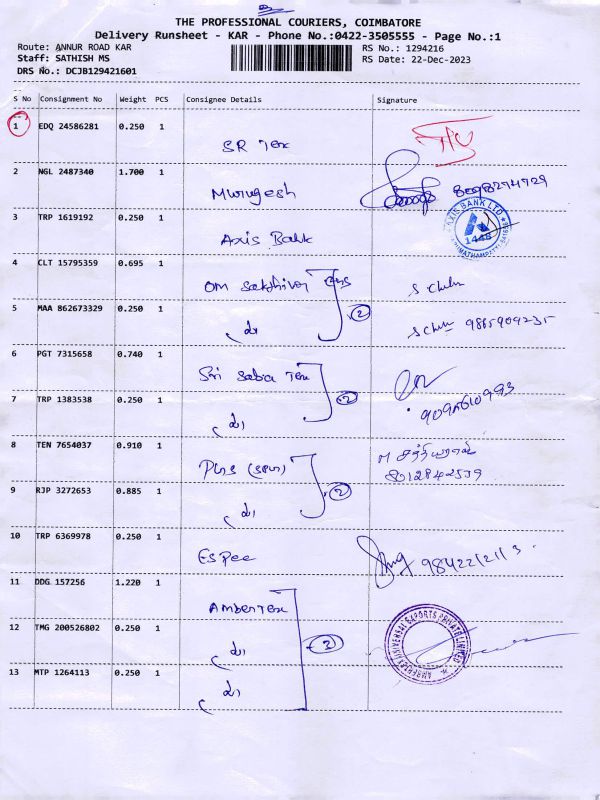 THE PROFESSIONAL COURIERS, COIMBATORE
Delivery Runsheet - KAR - Phone No.:0422-3505555 - Page No.:1
Route: ANNUR ROAD KAR
RS No.: 1294216
Staff: SATHISH MS
RS Date: 22-Dec-2023
DRS No.: DCJB129421601
S No Consignment No Weight PCS Consignee Details Signature
1 EDQ 24586281 0.250 1
SR Tex
2 NGL 2487340 1.700 1
Murugesh
3 TRP 1619192 0.250 1
Axis Bank
AXIS BANK LTD
1448
4 CLT 15795359 0.695 1
OM
5 MAA 862673329 0.250 1
2
9865909235
6 PGT 7315658 0.740 1
Sri Saba Tex
7 TRP 1383538 0.250 1
2
8 TEN 7654037 0.910 1
9 RJP 3272653 0.885 1
2
10 TRP 6369978 0.250 1
Espee
11 DDG 157256 1.220 1
Amber Tex
12 TMG 200526802 0.250 1
3
13 MTP 1264113 0.250 1